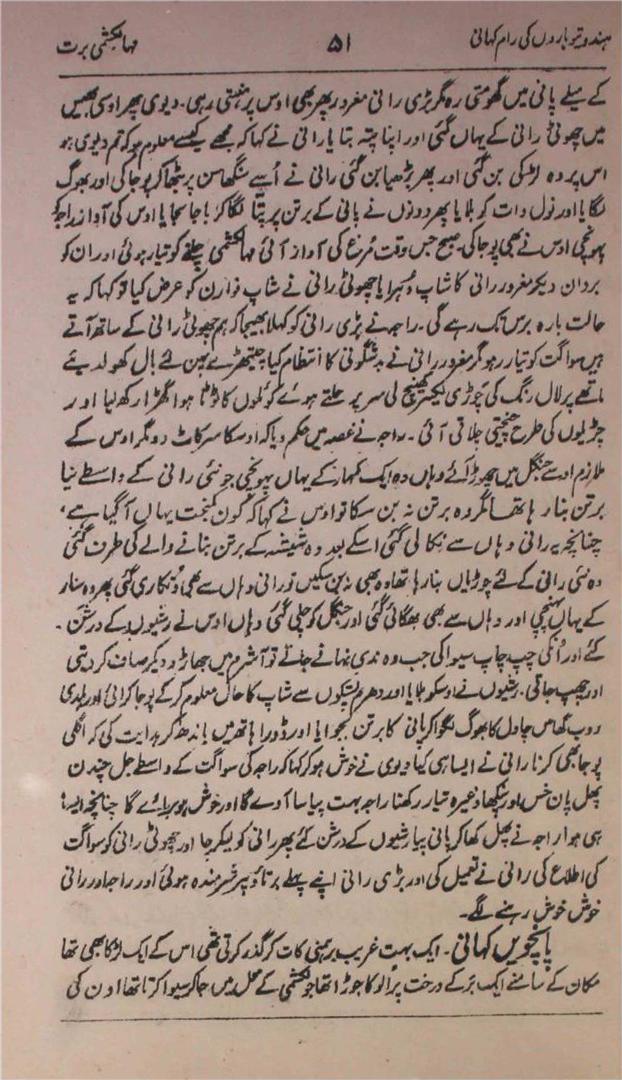 ہندو تیوہاروں کی رام کہانی ۵۱ مہالکشمی برت
کے میلے پانی میں گھومتی رہ مگر بڑی رانی مغرور پھر بھی اوس پر ہنستی رہی۔ دیوی پھر اوسی بھیس
میں چھوٹی رانی کے یہاں گئی اور اپنا پتہ بتایا رانی نے کہا کہ مجھے کیسے معلوم ہو کہ تم دیوی ہو
اس پر وہ لڑکی بن گئی اور پھر بڑھیا بن گئی رانی نے اُسے سنگھاسن پر بٹھا کر پوجا کی اور بھوگ
لگایا اور نول دات کو بلایا پھر دونوں نے پانی کے برتن پر پتا لگا کر باجا سجایا اوس کی آواز راجہ کو
پہونچی اوس نے بھی پوجا کی۔ صبح جس وقت مُرغ کی آواز آئی مہالکشمی چلنے کو تیار ہوئی اور ان کو
بردان دیکر مغرور رانی کا شاپ دُہرایا چھوٹی رانی نے شاپ نوارن کو عرض کیا تو کہا کہ یہ
حالت بارہ برس تک رہے گی۔ راجہ نے بڑی رانی کو کہلا بھیجا کہ ہم چھوٹی رانی کے ساتھ آتے
ہیں سواگت کو تیار رہو مگر مغرور رانی نے بدشگونی کا انتظام کیا چیتھڑے پہن لئے بال کھول دیئے
ماتھے پر لال رنگ کی چوڑی لکیر کھینچ لی سر پر جلتے ہوئے کوئلوں کا ٹوٹا ہوا گھڑا رکھ لیا اور
چڑیلوں کی طرح چیختی چلاتی آئی۔ راجہ نے غصہ میں حکم دیا کہ اوسکا سر کاٹ دو مگر اوس کے
ملازم اوسے جنگل میں چھوڑ آئے وہاں وہ ایک کمہار کے یہاں پہونچی جو نئی رانی کے واسطے نیا
برتن بنا رہا تھا مگر وہ برتن نہ بن سکا تو اوس نے کہا کہ کون کمبخت یہاں آ گیا ہے،
چنانچہ یہ رانی وہاں سے نکالی گئی اسکے بعد وہ شیشہ کے برتن بنانے والے کی طرف گئی
وہ نئی رانی کے لئے چوڑیاں بنا رہا تھا وہ بھی نہ بن سکیں تو رانی وہاں سے بھی دُتکاری گئی پھر وہ سنار
کے یہاں پہنچی اور وہاں سے بھی بھگائی گئی اور جنگل کو چلی گئی وہاں اوس نے رشیوں کے درشن۔
کئے اور اُنکی چپ چاپ سیوا کی جب وہ ندی نہانے جاتے تو آشرم میں جھاڑو دیکر صاف کر دیتی
اور چھپ جاتی۔ رشیوں نے اوسکو بلایا اور دھرم پستکوں سے شاپ کا حال معلوم کر کے پوجا کرائی اور ہلدی
دوب گھاس چاول کا بھوگ لگوا کر پانی کا برتن بجوایا اور ڈورا ہاتھ میں باندھ کر ہدایت کی کہ اگلی
پوجا بھی کرنا رانی نے ایسا ہی کیا دیوی نے خوش ہو کر کہا کہ راجہ کی سواگت کے واسطے جل چندن
پھل پان خس اور پنکھا وغیرہ تیار رکھنا راجہ بہت پیاسا آوے گا اور خوش ہو جائے گا چنانچہ ایسا
ہی ہوا راجہ نے پھل کھا کر پانی پیا رشیوں کے درشن کئے پھر رانی کو لیکر چلا اور چھوٹی رانی کو سواگت
کی اطلاع کی رانی نے تعمیل کی اور بڑی رانی اپنے پہلے برتاؤ پر شرمندہ ہوئی اور راجہ اور رانی
خوش خوش رہنے لگے۔
پانچویں کہانی۔ ایک بہت غریب برہمنی کات کر گذر کرتی تھی اس کے ایک لڑکا بھی تھا
مکان کے سامنے ایک بڑ کے درخت پر الو کا جوڑا تھا جو لکشمی کے محل میں جا کر سیوا کرتا تھا اون کی